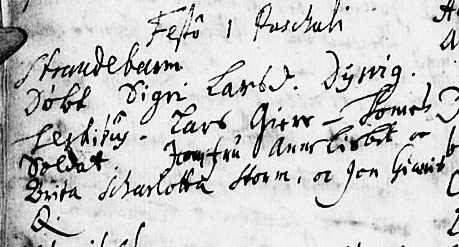 Festô 1 Paschali
Strandebarm
Döbt Sigri Larsd. Dÿvig.
Lars Giere - Tomes
Soldat Jomfru Anne Lisbet oc
Brita Scharlotta Storm. oc Jon
Q.